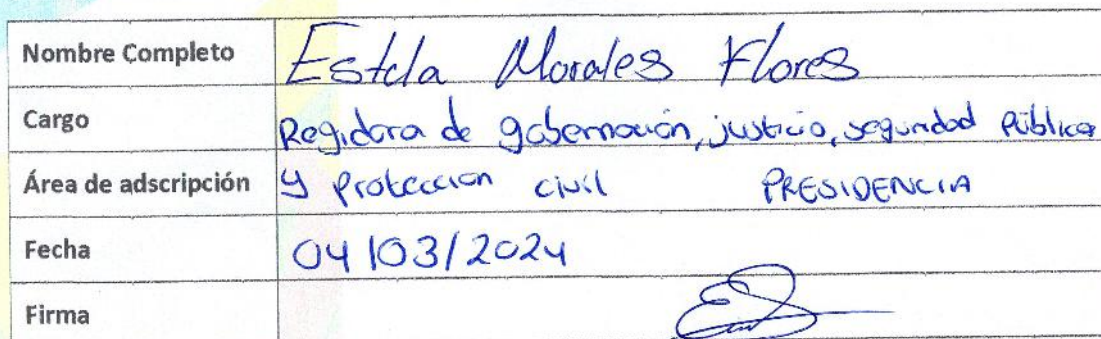 Nombre Completo Estela Morales Flores
Cargo Regidora de gobernación, justicia, seguridad Pública
Área de adscripción y Protección civil PRESIDENCIA
Fecha 04/03/2024
Firma